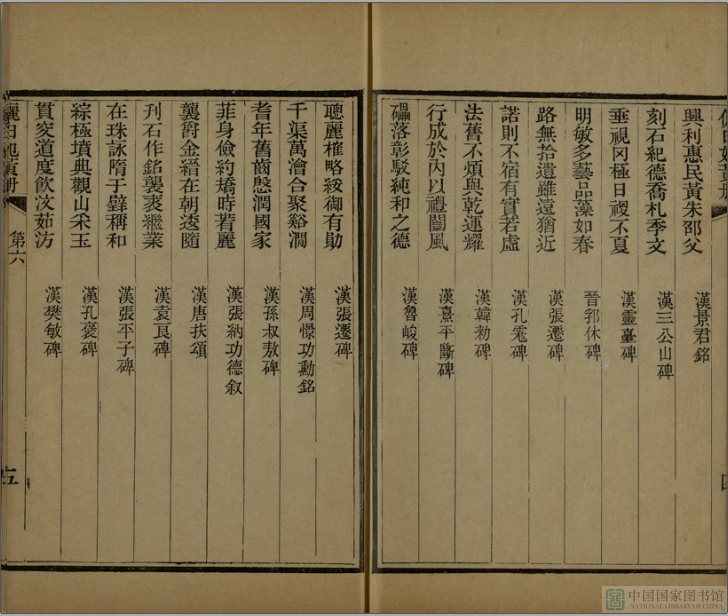 興利惠民黃朱邵父
漢景君銘
刻石紀德喬札季文
漢三公山碑
垂視罔極日稷不夏
漢靈臺碑
明敏多藝品藻如春
晉郛休碑
路無拾遺雖遠猶近
漢張遷碑
諾則不宿有實若虛
漢孔彪碑
法舊不煩與乾運耀
漢韓勑碑
行成於內以禮闓風
漢熹平斷碑
礧落彰駁純和之德
漢魯峻碑
聰麗權略綏御有勛
漢張遷碑
千渠萬澮合聚谿澗
漢周憬功勳銘
耆年舊齒慇潤國家
漢孫叔敖碑
菲身儉約矯時若麗
漢張納功德叙
襲爵金縉在朝逶隨
漢唐扶頌
刋石作銘襲衷繼業
漢袁良碑
在珠詠隋于璧稱和
漢張平子碑
綜極墳典觀山采玉
漢孔褒碑
貫究道度飲汶茹汸
漢樊敏碑
第六
五
中国国家图书馆
NATIONAL LIBRARY OF CHINA